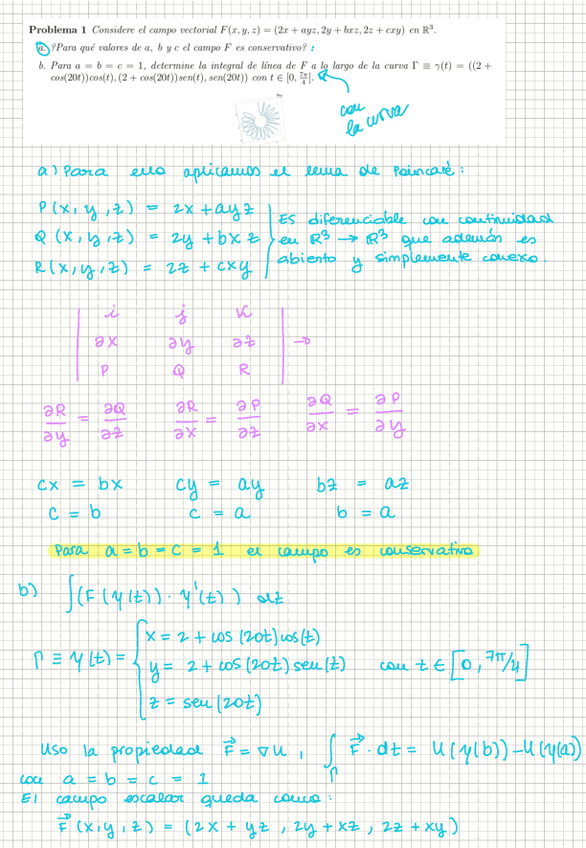 Problema 1 Considere el campo vectorial F(x, y, z) = (2x + ayz, 2y + bxz, 2z + cxy) en ℝ³.
a. ?Para qué valores de a, b y c el campo F es conservativo? :
b. Para a = b = c = 1, determine la integral de línea de F a lo largo de la curva Γ ≡ γ(t) = ((2 +
cos(20t))cos(t), (2 + cos(20t))sen(t), sen(20t)) con t ∈ [0, 7π/4].
con
la curva
a) Para ello aplicamos el lema de Poincaré:
P(x, y, z) = 2x + ayz
Q(x, y, z) = 2y + bxz
R(x, y, z) = 2z + cxy
ES diferenciable con continuidad
en ℝ³ → ℝ³ que además es
abierto y simplemente conexo.
i j k
∂x ∂y ∂z →
P Q R
∂R/∂y = ∂Q/∂z ∂R/∂x = ∂P/∂z ∂Q/∂x = ∂P/∂y
cx = bx cy = ay bz = az
c = b c = a b = a
Para a = b = c = 1 el campo es conservativo.
b) ∫(F(γ(t)) · γ'(t)) dt
Γ ≡ γ(t) = { x = 2 + cos(20t)cos(t)
y = 2 + cos(20t)sen(t) con t ∈ [0, 7π/4]
z = sen(20t)
Uso la propiedad F⃗ = ∇U, ∫_Γ F⃗ · dt = U(γ(b)) - U(γ(a))
con a = b = c = 1
El campo escalar queda como:
F⃗(x, y, z) = (2x + yz, 2y + xz, 2z + xy)